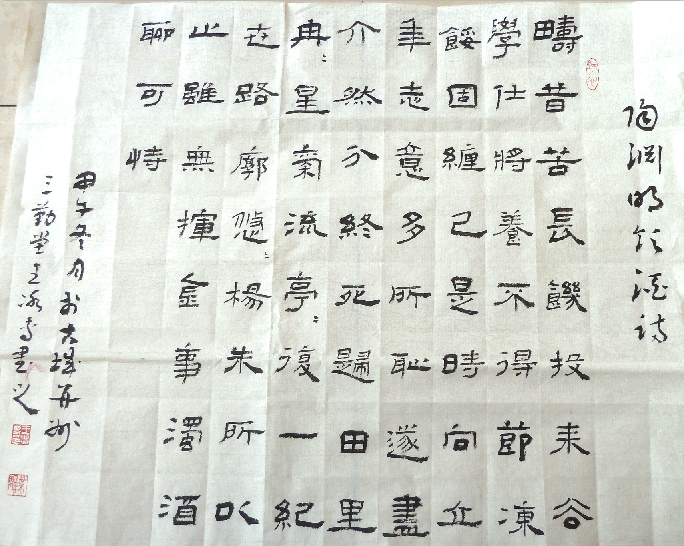 陶渊明饮酒诗
疇昔苦長饑投耒去
學仕將養不得節凍
餒固纏己是時向立
年志意多所恥遂盡
介然分終死歸田里
冉〻星氣流亭〻復一紀
世路廓悠〻楊朱所以
止雖無揮金事濁酒
聊可恃
甲午冬月於古城并州
三勤堂主書之